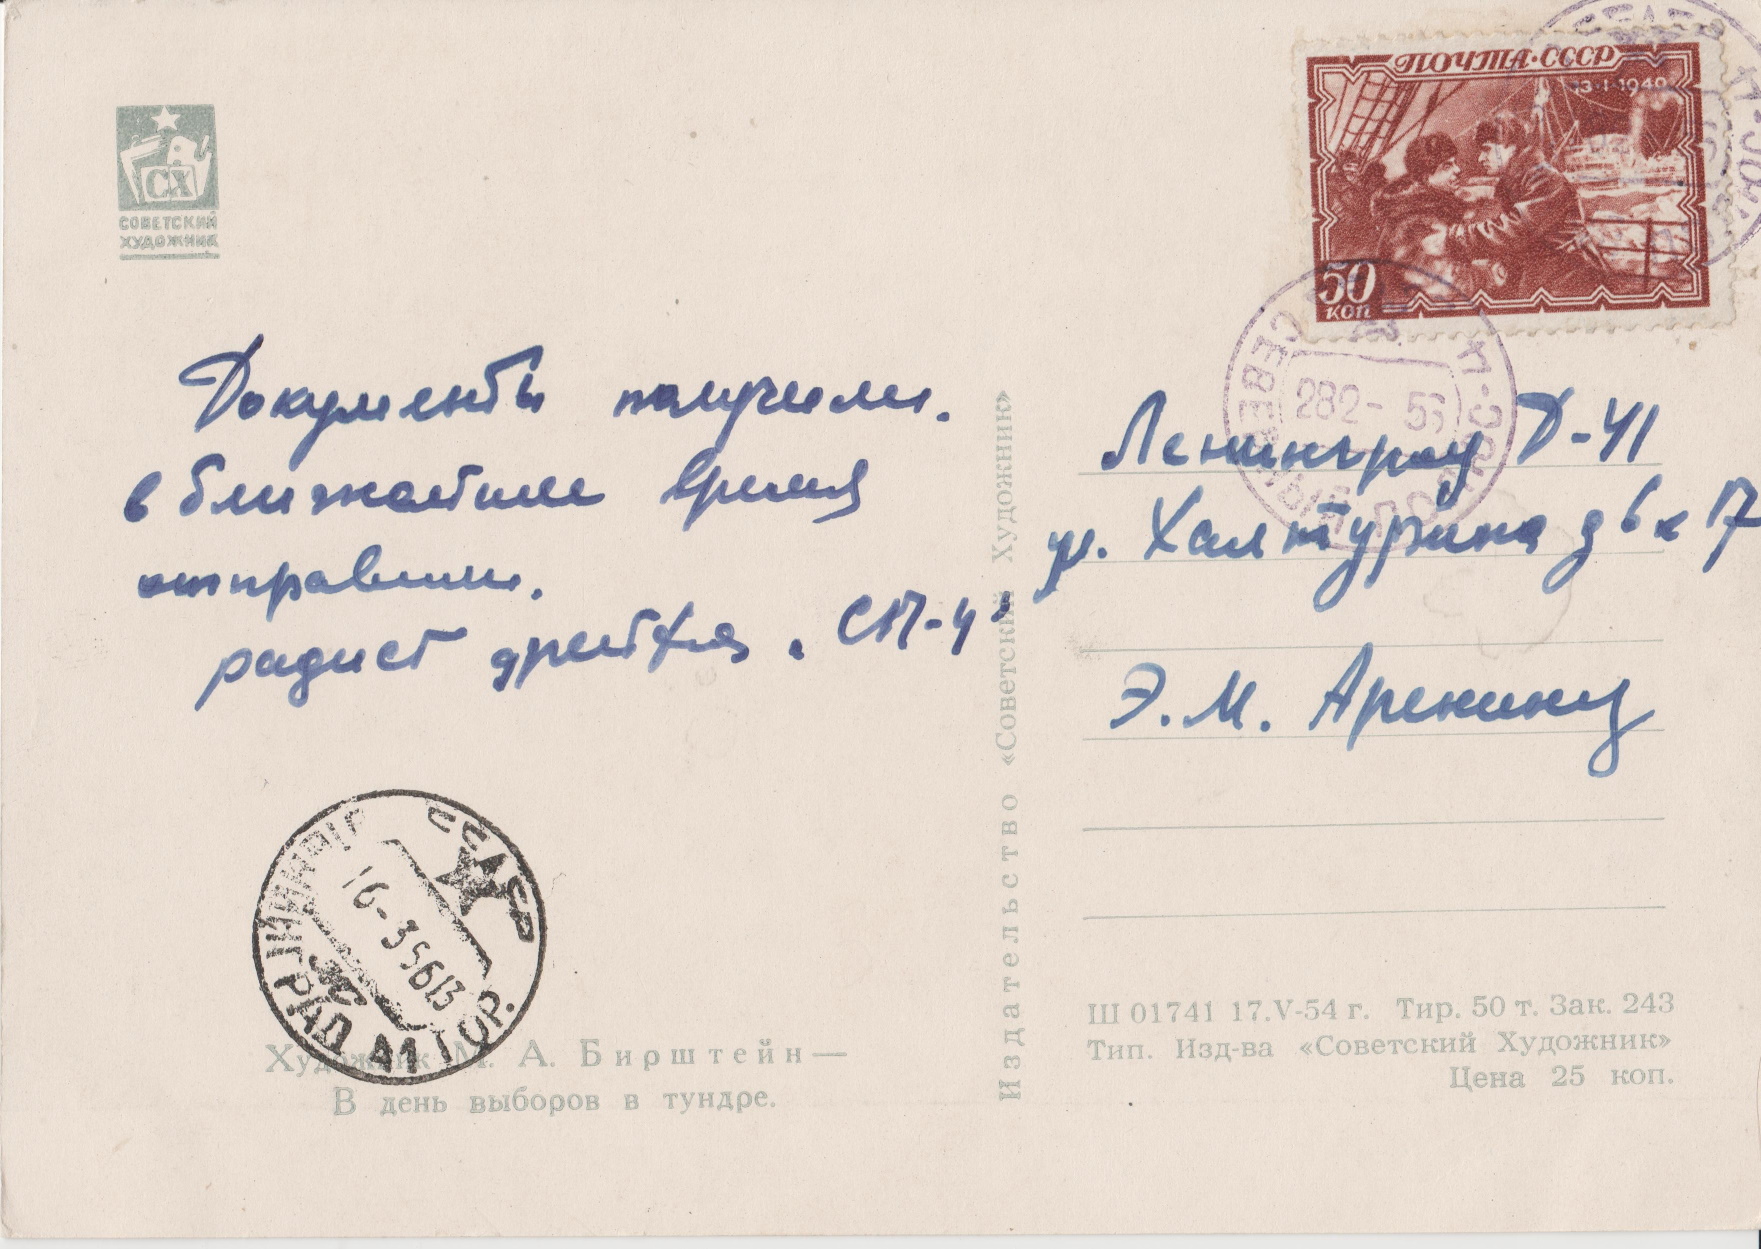 СХ
СОВЕТСКИЙ
ХУДОЖНИК
ПОЧТА·СССР
13·I·1940
50
коп
Документы получили.
в ближайшие время
отправим.
радист дрейфа „СП-4“
282- 56
СЕВЕРНЫЙ ПОЛЮС-4
Ленинград Д-41
ул. Халтурина д 6 к 17
Э. М. Аренину
Издательство «Советский Художник»
СССР
ЛЕНИНГРАД А1 ГОР.
16-35613
Художник М. А. Бирштейн—
В день выборов в тундре.
Ш 01741 17.V-54 г. Тир. 50 т. Зак. 243
Тип. Изд-ва «Советский Художник»
Цена 25 коп.